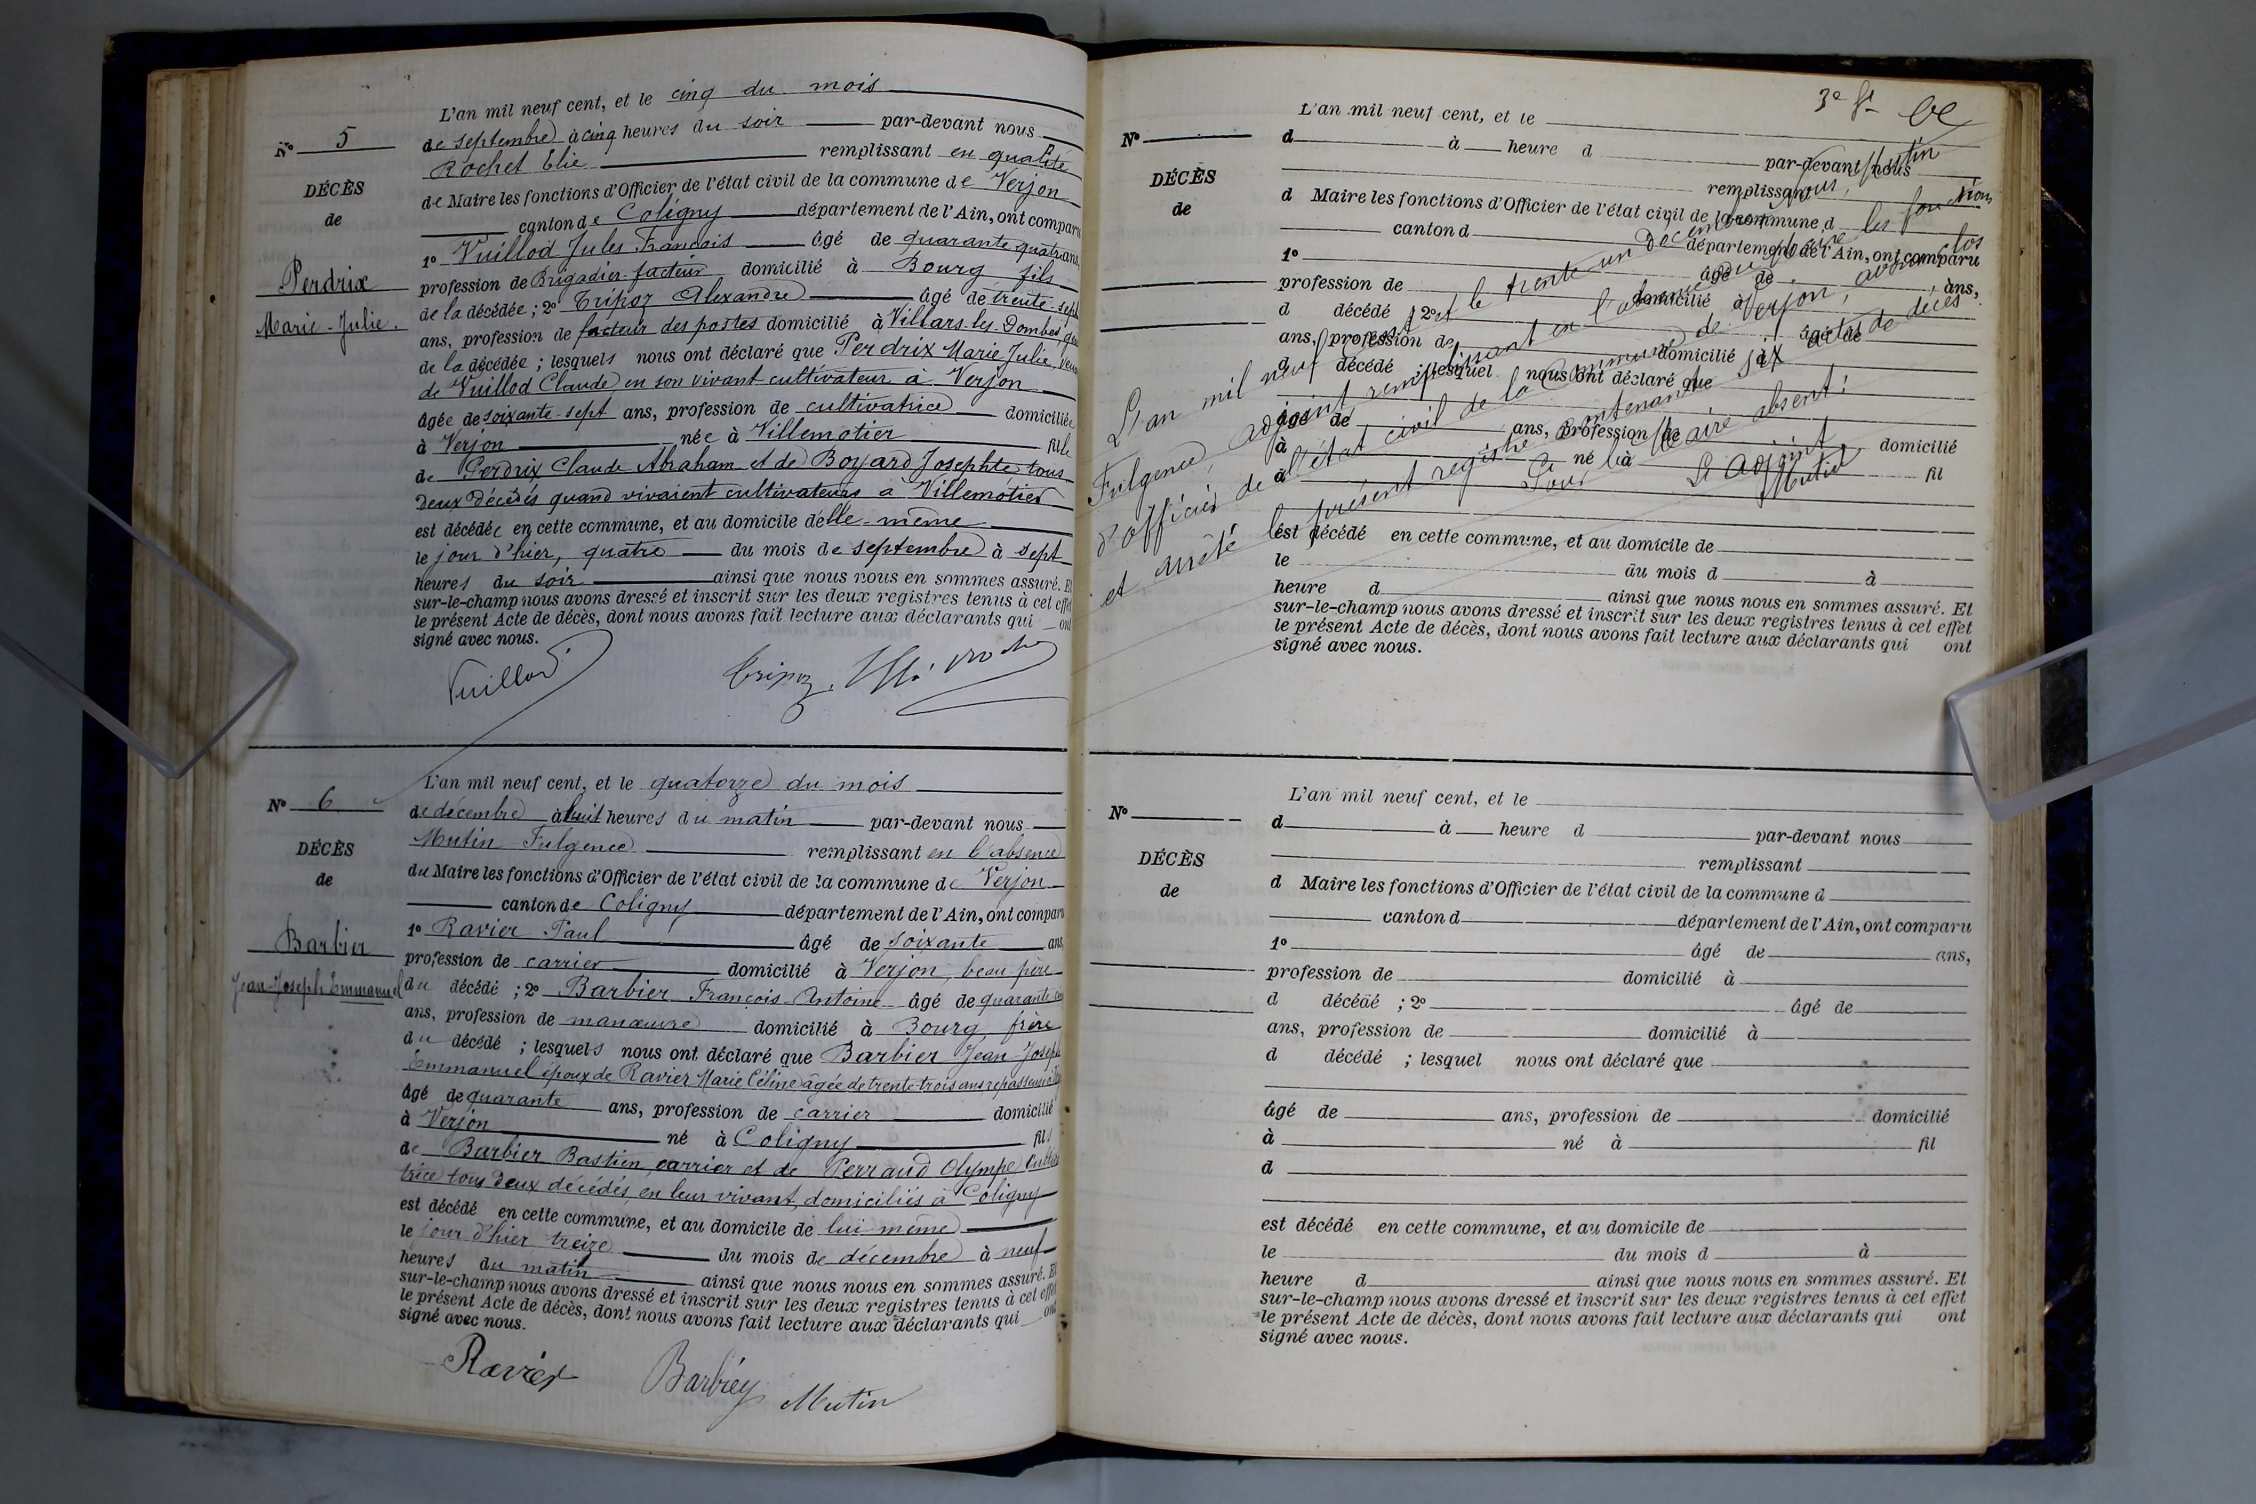 N° 5
DÉCÈS
de
Perdrix
Marie-Julie.
L'an mil neuf cent, et le cinq du mois
de septembre à cinq heures du soir par-devant nous
Rochet Elie remplissant en qualité
de Maire les fonctions d'Officier de l'état civil de la commune de Verjon
canton de Coligny département de l'Ain, ont comparu
1° Vuillod Jules François âgé de quarante quatre ans,
profession de Brigadier-facteur domicilié à Bourg fils
de la décédée ; 2° Tripoz Alexandre âgé de trente-sept
ans, profession de facteur des postes domicilié à Villars-les-Dombes,
de la décédée ; lesquels nous ont déclaré que Perdrix Marie Julie,
de Vuillod Claude en son vivant cultivateur à Verjon
âgée de soixante-sept ans, profession de cultivatrice domiciliée
à Verjon née à Villemotier fille
de Perdrix Claude Abraham et de Boyard Josephte tous
deux décédés quand vivaient cultivateurs à Villemotier
est décédée en cette commune, et au domicile d'elle-même
le jour d'hier, quatre du mois de septembre à sept
heures du soir ainsi que nous nous en sommes assuré. Et
sur-le-champ nous avons dressé et inscrit sur les deux registres tenus à cet effet
le présent Acte de décès, dont nous avons fait lecture aux déclarants qui ont
signé avec nous.
Vuillod Tripoz
N° 6
DÉCÈS
de
Barbier
Jean-Joseph Emmanuel
L'an mil neuf cent, et le quatorze du mois
de décembre à huit heures du matin par-devant nous
Mutin Fulgence remplissant en l'absence
du Maire les fonctions d'Officier de l'état civil de la commune de Verjon
canton de Coligny département de l'Ain, ont comparu
1° Ravier Paul âgé de soixante ans
profession de carrier domicilié à Verjon, beau père
du décédé ; 2° Barbier François Antoine âgé de quarante
ans, profession de manœuvre domicilié à Bourg frère
du décédé ; lesquels nous ont déclaré que Barbier Jean-Joseph
Emmanuel époux de Ravier Marie Céline âgée de trente-trois ans repasseuse
âgé de quarante ans, profession de carrier domicilié
à Verjon né à Coligny fils
de Barbier Bastien carrier et de Perraud Olympe
trice tous deux décédés en leur vivant, domiciliés à Coligny
est décédé en cette commune, et au domicile de lui même
le jour d'hier treize du mois de décembre à neuf
heures du matin ainsi que nous nous en sommes assuré. Et
sur-le-champ nous avons dressé et inscrit sur les deux registres tenus à cet effet
le présent Acte de décès, dont nous avons fait lecture aux déclarants qui ont
signé avec nous.
Ravier Barbier Mutin
3e
N°
DÉCÈS
de
L'an mil neuf cent, et le
d à heure d par-devant nous
remplissant
d Maire les fonctions d'Officier de l'état civil de la commune d
canton d département de l'Ain, ont comparu
1° âgé de ans,
profession de domicilié à
d décédé ; 2° âgé de
ans, profession de domicilié à
d décédé ; lesquel nous ont déclaré que
âgé de ans, profession de domicilié
à né à fil
d
est décédé en cette commune, et au domicile de
le du mois d à
heure d ainsi que nous nous en sommes assuré. Et
sur-le-champ nous avons dressé et inscrit sur les deux registres tenus à cet effet
le présent Acte de décès, dont nous avons fait lecture aux déclarants qui ont
signé avec nous.
L'an mil neuf cent et le trente un décembre, nous, Mutin
Fulgence, adjoint remplissant en l'absence du Maire les fonctions
d'officier de l'état civil de la commune de Verjon, avons clos
et arrêté le présent registre contenant six actes de décès
Pour le Maire absent:
L'adjoint
Mutin
N°
DÉCÈS
de
L'an mil neuf cent, et le
d à heure d par-devant nous
remplissant
d Maire les fonctions d'Officier de l'état civil de la commune d
canton d département de l'Ain, ont comparu
1° âgé de ans,
profession de domicilié à
d décédé ; 2° âgé de
ans, profession de domicilié à
d décédé ; lesquel nous ont déclaré que
âgé de ans, profession de domicilié
à né à fil
d
est décédé en cette commune, et au domicile de
le du mois d à
heure d ainsi que nous nous en sommes assuré. Et
sur-le-champ nous avons dressé et inscrit sur les deux registres tenus à cet effet
le présent Acte de décès, dont nous avons fait lecture aux déclarants qui ont
signé avec nous.